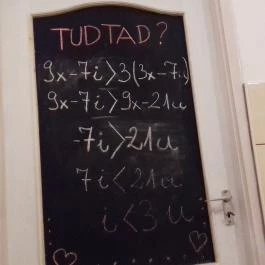 TUDTAD?
9x-7i>3(3x-7u)
9x-7i>9x-21u
-7i>21u
7i<21u
i<3u